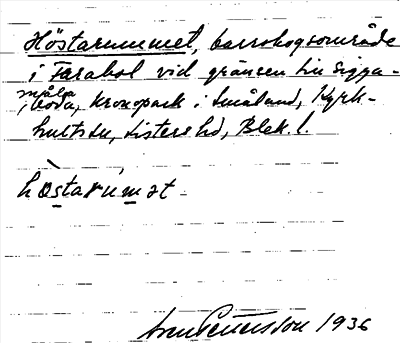 Höstarummet, barrskogsområde
i Farabol vid gränsen till Sigga-
måla, boda, kronopark i Småland, Kyrk-
hults sn, Listers hd, Blek. l.
hòstarúmet
Sven Pettersson 1936